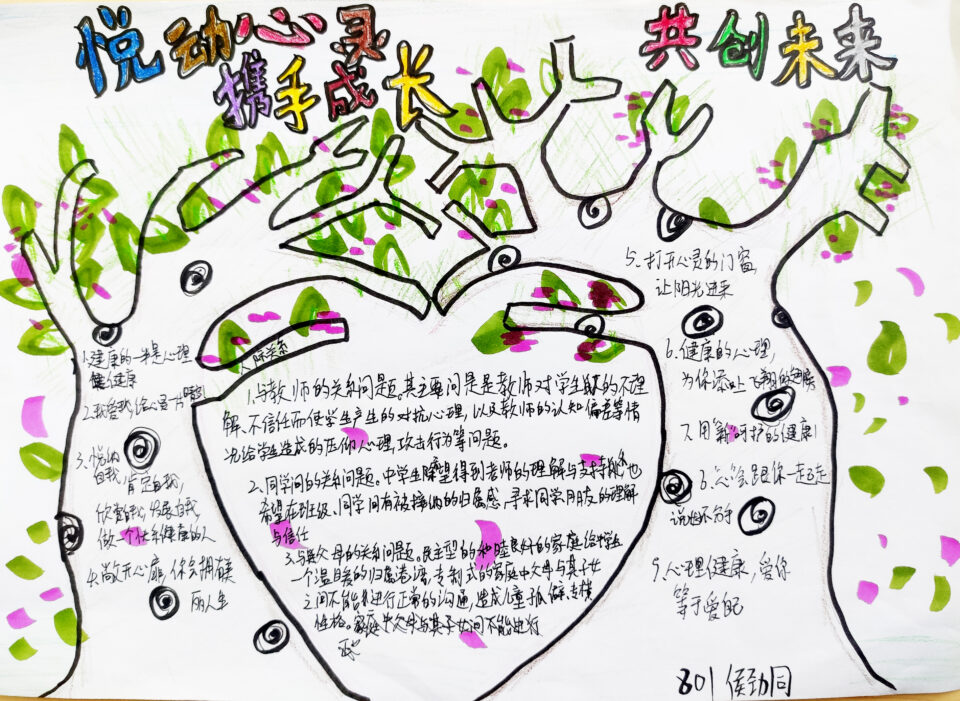 悦动心灵
携手成长
共创未来
1.建康的一半是心理
健健康
3、悦纳
自我,肯定自我,
欣赏自我,发展自我,
做一个 健康的人
4.敞开心扉,你会拥有美
丽人生
人际关系
1.与教师的关系问题。其主要问是是教师对学生 的不理
解、不信任而使学生产生的对抗心理,以及教师的认知偏差等情
况给学生造成的压抑心理,攻击行为等问题。
2.同学间的关系问题。中学生 希望得到老师的理解与支持 也
希望在班级、同学间有被接纳的归属感,寻求同学朋友的理解
与信任
3.与父母的关系问题。民主型的和睦良好的家庭给中学生
一个温暖的归属港湾,专制式的家庭中父母与其子女
之间不能 进行正常的沟通,造成儿童孤僻、专横
性格。家庭中父母与其子女间不能进行
5、打开心灵的门窗,
让阳光进来
6.健康的心理,
为你添上飞翔的翅膀
7.用 呵护的健康!
跟你一起走
说
9.心理健康,爱你
等于爱自己
801 侯劲同